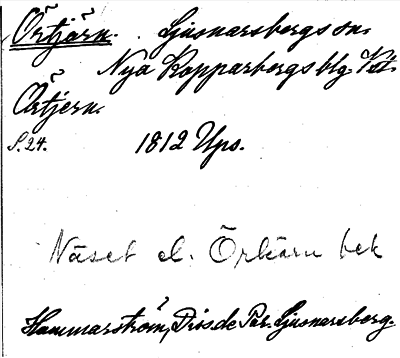 Örtjärn. Ljusnarsbergs sn.
Nya Kopparbergs blg. Vstm.
Örtjern.
S. 24. 1812 Ups.
Näset el. Örtkärn bek
Hammarström, Diss. de Par. Ljusnarsberg.